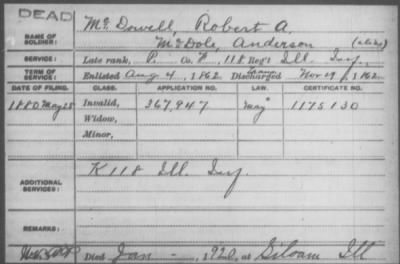 DEAD
NAME OF SOLDIER: McDowell, Robert A.
McDole, Anderson (alias)
SERVICE: Late rank, P. Co. F, 118 Reg't Ill. Inf.
TERM OF SERVICE: Enlisted Aug 4, 1862 Discharged Nov 29, 1862
DATE OF FILING. CLASS. APPLICATION NO. LAW. CERTIFICATE NO.
1880 May 28 Invalid, 367,947 1175130
Widow,
Minor,
ADDITIONAL SERVICES: K 118 Ill. Inf.
REMARKS:
Died Jan - , 1920, at Siloam Ill